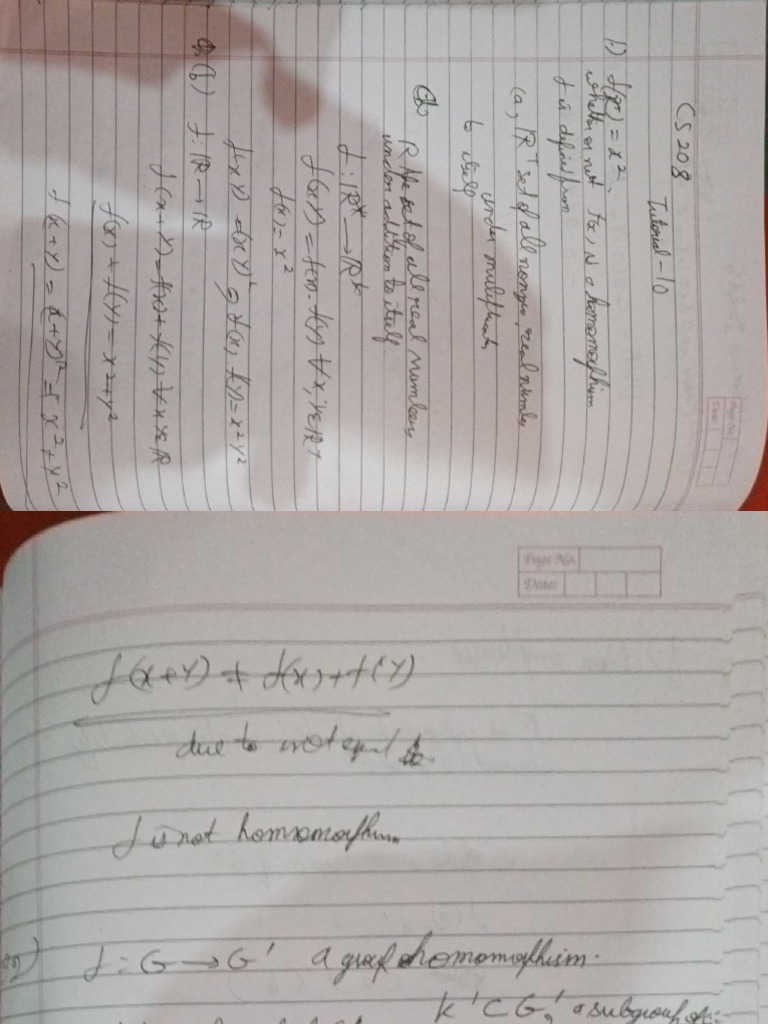 Page No.
Date:
CS 208
Tutorial - 10
1.) f(x) = x².
whether or not is a homomorphism
f is define from
(a) set of all nonzero real number
under
to itself
R the set of all real numbers
under addition to itself.
f: R* → R*
f(xY) = f(x). f(Y) ∀ x, Y ∈ R
f(x) = x²
f(xY) = (xY)² = f(x) f(Y) = x²Y²
(b) f: R → R
f(x+Y) = f(x) + f(Y) ∀ x Y ∈ R
f(x) + f(Y) = x² + Y²
f(x+Y) = (x+Y)² x² + Y²
Page No.
Date:
f(x+Y) ≠ f(x) + f(Y)
due to not equal
f is not
f: G → G' a homomorphism.
K' ⊂ G' a subgroup of